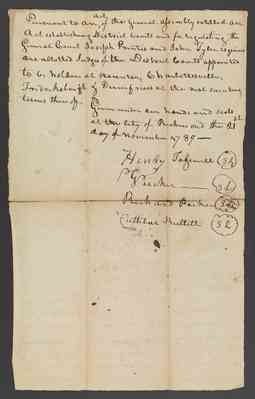 Pursuant to an act of the General Assembly entitled An
Act establishing District Courts and for regulating the
General Court Joseph Prentis and John Tyler esquires
are allotted Judges of the District Courts appointed
to be holden at Staunton, Charlottesville,
Fredericksburg & Dumfries at the next succeeding
terms thereof.
Given under our hands and seals
at the City of Richmond this 21st
day of November 1789 —
Henry Tazewell
Richard Parker
Cuthbert Bullitt